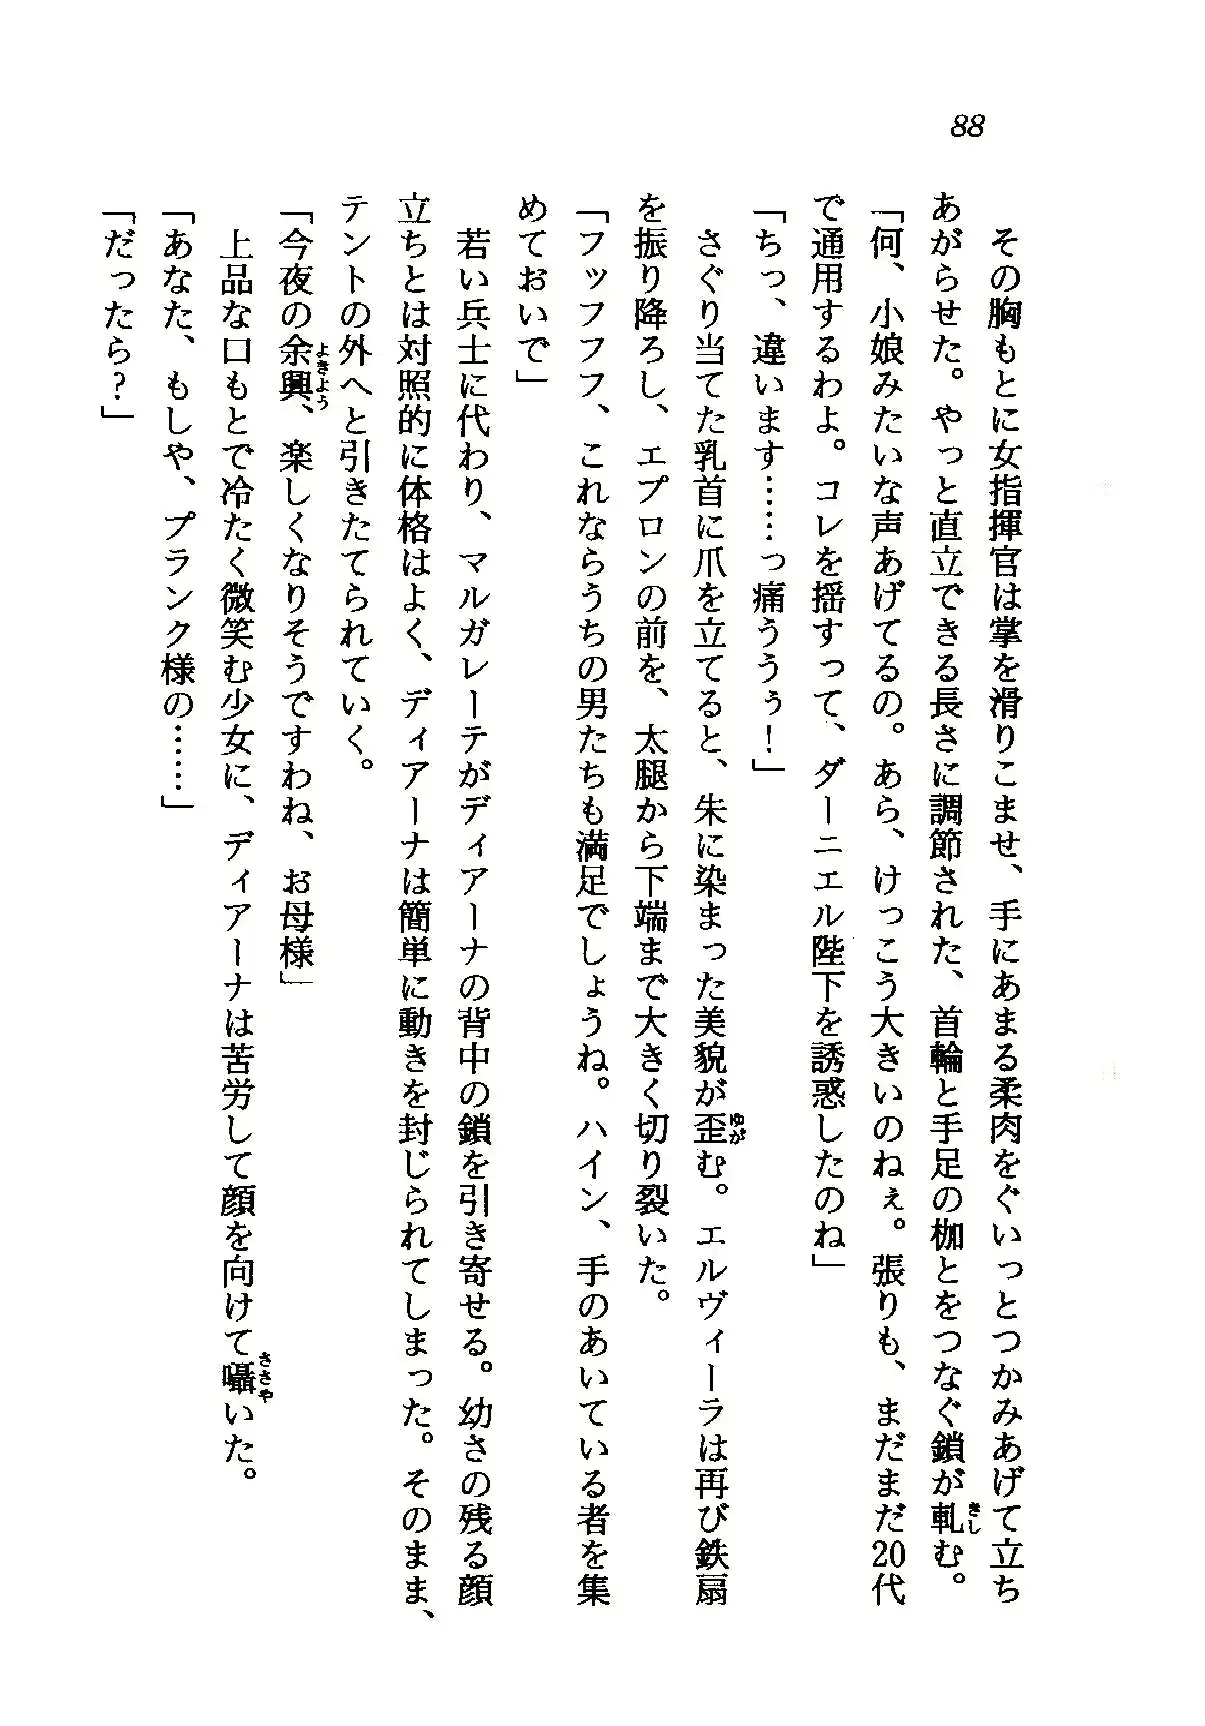 88
その胸もとに女指揮官は掌を滑りこませ、手にあまる柔肉をぐいっとつかみあげて立ち
あがらせた。やっと直立できる長さに調節された、首輪と手足の枷とをつなぐ鎖が軋む。
「何、小娘みたいな声あげてるの。あら、けっこう大きいのねぇ。張りも、まだまだ20代
で通用するわよ。コレを揺すって、ダーニエル陛下を誘惑したのね」
「ちっ、違います……っ痛うぅぅ！」
さぐり当てた乳首に爪を立てると、朱に染まった美貌が歪む。エルヴィーラは再び鉄扇
を振り降ろし、エプロンの前を、太腿から下端まで大きく切り裂いた。
「フッフフフ、これならうちの男たちも満足でしょうね。ハイン、手のあいている者を集
めておいで」
若い兵士に代わり、マルガレーテがディアーナの背中の鎖を引き寄せる。幼さの残る顔
立ちとは対照的に体格はよく、ディアーナは簡単に動きを封じられてしまった。そのまま、
テントの外へと引きたてられていく。
「今夜の余興、楽しくなりそうですわね、お母様」
上品な口もとで冷たく微笑む少女に、ディアーナは苦労して顔を向けて囁いた。
「あなた、もしや、プランク様の……」
「だったら？」